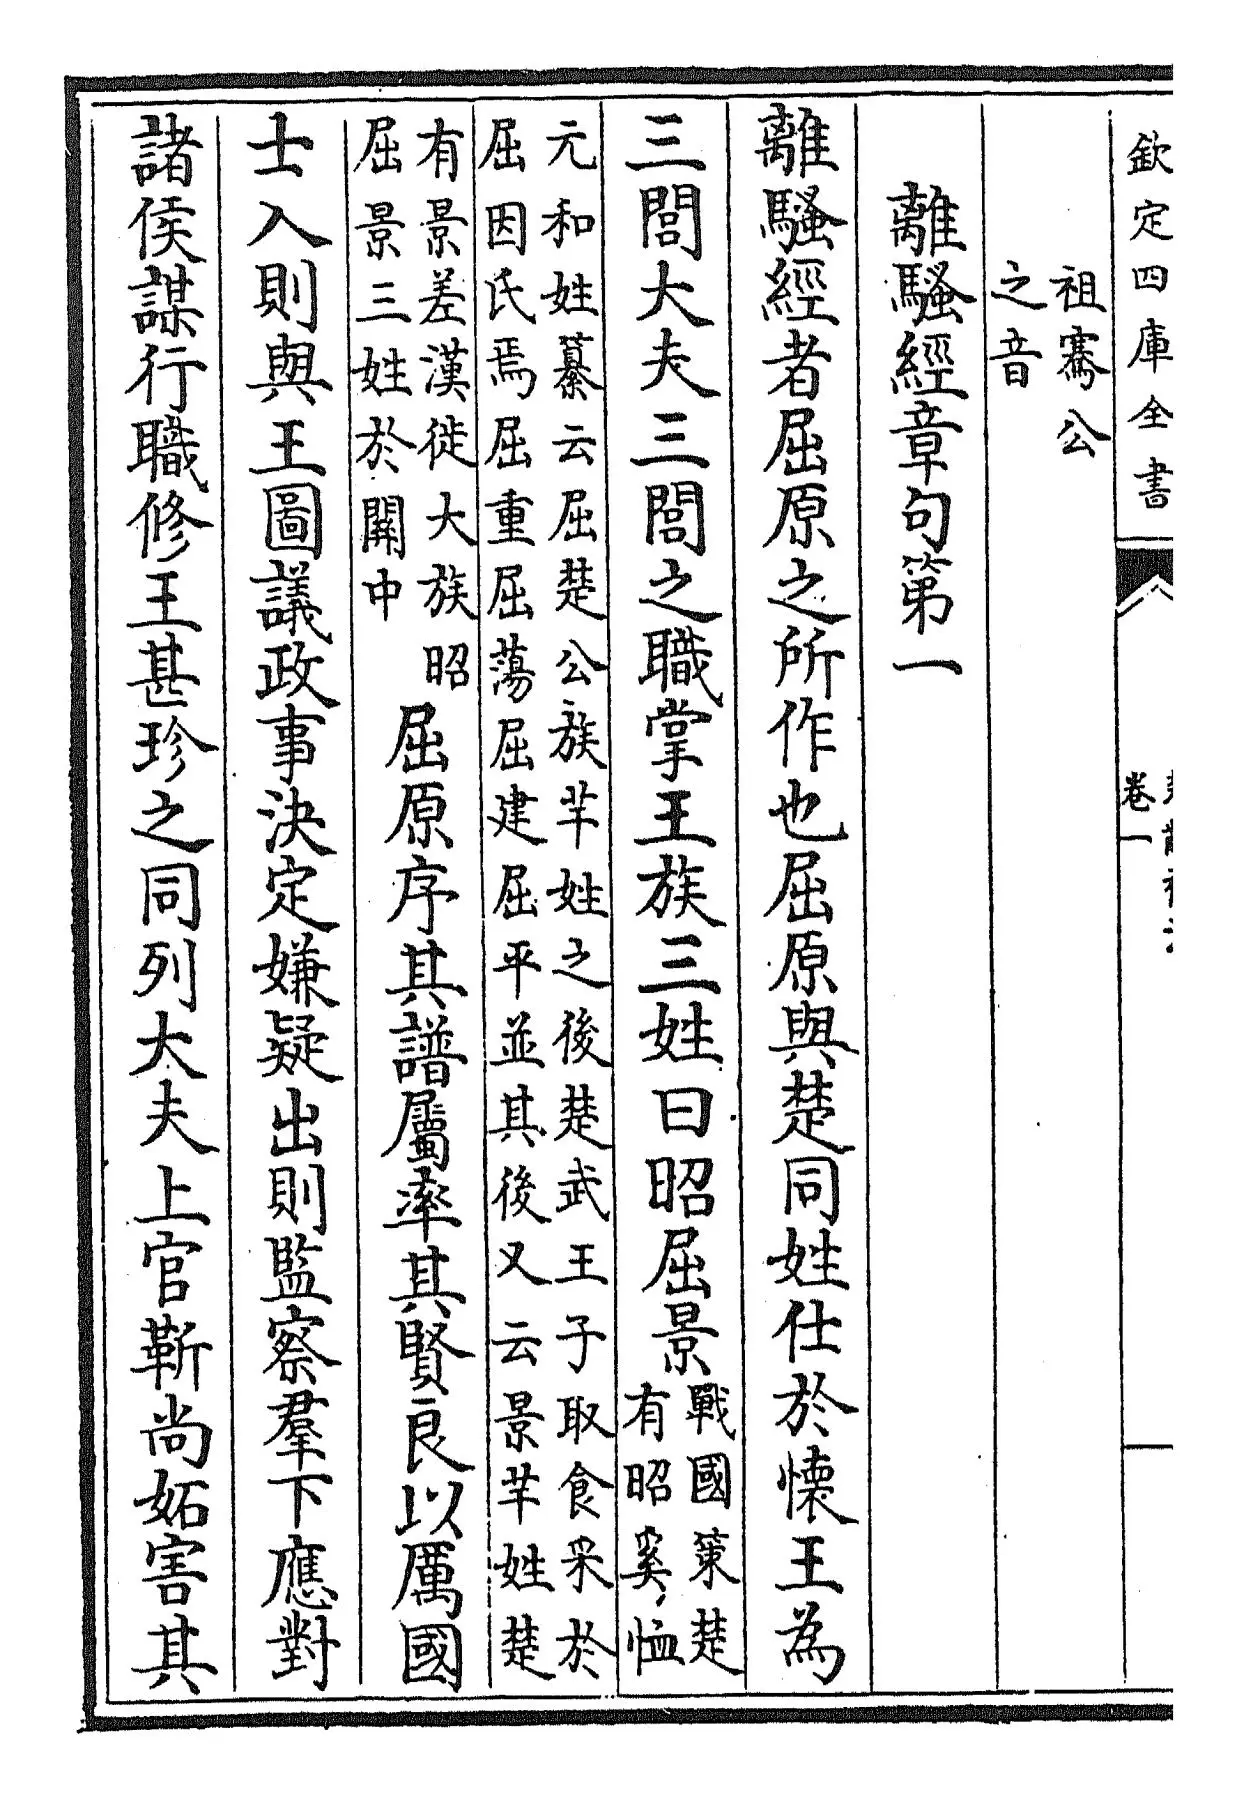 欽定四庫全書
卷一
祖騫公
之音
離騷經章句第一
離騷經者屈原之所作也屈原與楚同姓仕於懷王為
三閭大夫三閭之職掌王族三姓曰昭屈景
戰國策楚
有昭奚恤
元和姓纂云屈楚公族芈姓之後楚武王子取食采於
屈因氏焉屈重屈蕩屈建屈平並其後又云景芈姓楚
有景差漢徙大族昭
屈景三姓於關中
屈原序其譜屬率其賢良以厲國
士入則與王圖議政事決定嫌疑出則監察羣下應對
諸侯謀行職修王甚珍之同列大夫上官靳尚妬害其